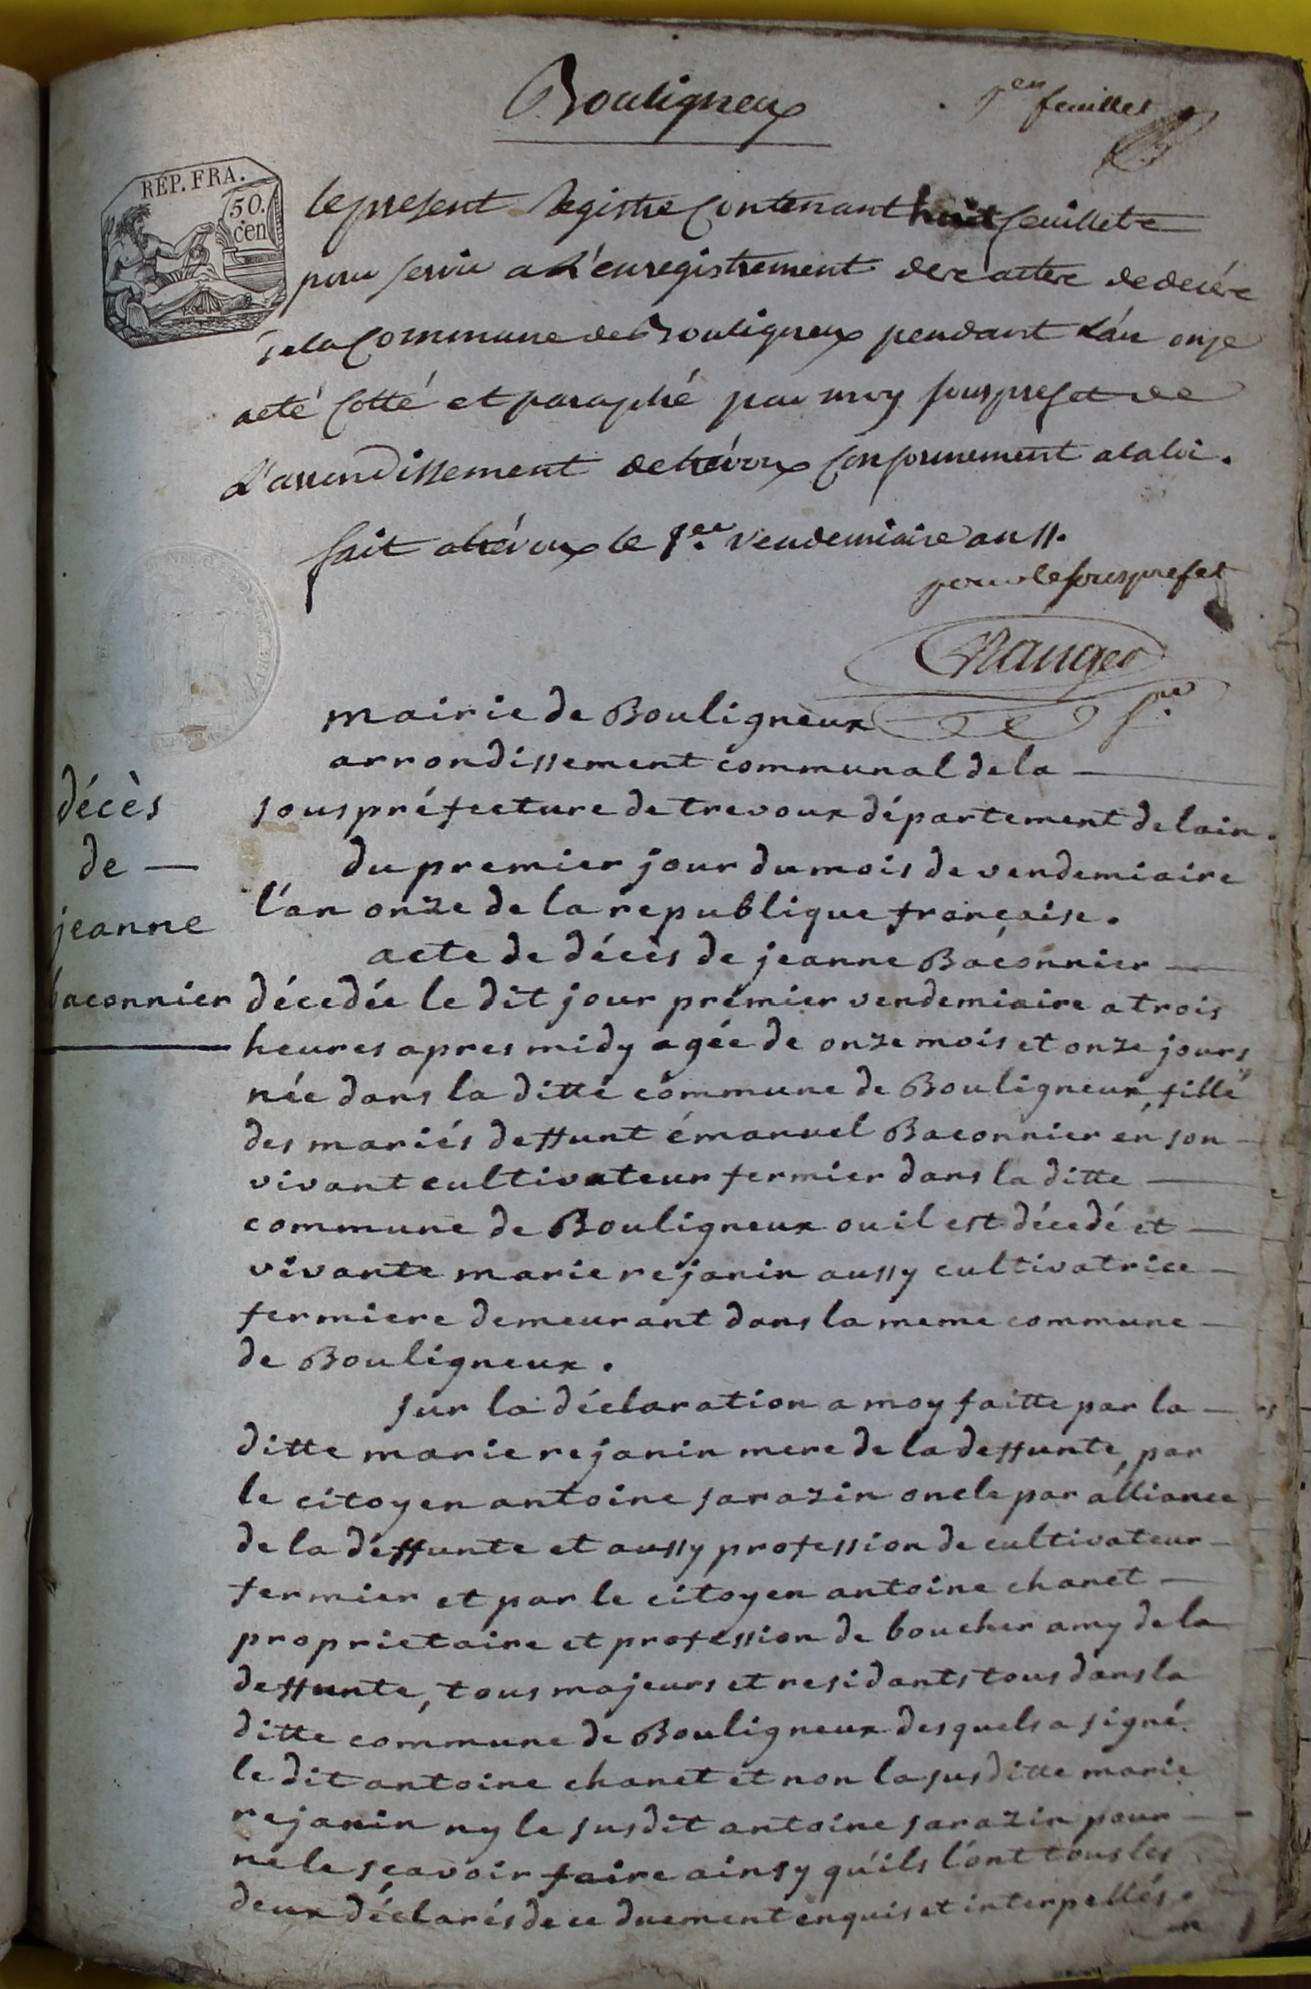 Bouligneux
1er feuillet
REP. FRA.
50.
cen
le present Registre contenant huit feuillets
pour servir a L'enregistrement des actes de decès
de la Commune de Bouligneux pendant L'an onze
a eté Cotté et paraphé par moy sousprefet de
L'arrondissement de trévoux conformement a la loi.
fait a trévoux le 1er vendemiaire an 11.
pour le sousprefet
mairie de Bouligneux
arrondissement communal de la
souspréfecture de trevoux département de lain.
du premier jour du mois de vendemiaire
l'an onze de la republique française.
décès
de
jeanne
baconnier
acte de décès de jeanne Baconnier
décedée le dit jour premier vendemiaire a trois
heures apres midy agée de onze mois et onze jours
née dans la ditte commune de Bouligneux, fille
des mariés deffunt émanuel Baconnier en son
vivant cultivateur fermier dans la ditte
commune de Bouligneux ou il est décedé et
vivante marie rejanin aussy cultivatrice
fermiere demeurant dans la meme commune
de Bouligneux.
sur la déclaration a moy faitte par la
ditte marie rejanin mere de la deffunte, par
le citoyen antoine sarazin oncle par alliance
de la deffunte et aussy profession de cultivateur
fermier et par le citoyen antoine chanet
proprietaire et profession de boucher amy de la
deffunte, tous majeurs et residants tous dans la
ditte commune de Bouligneux desquels a signé
le dit antoine chanet et non la susditte marie
rejanin ny le susdit antoine sarazin pour
ne le sçavoir faire ainsy qu'ils l'ont tous les
deux déclarés de ce duement enquis et interpellés.